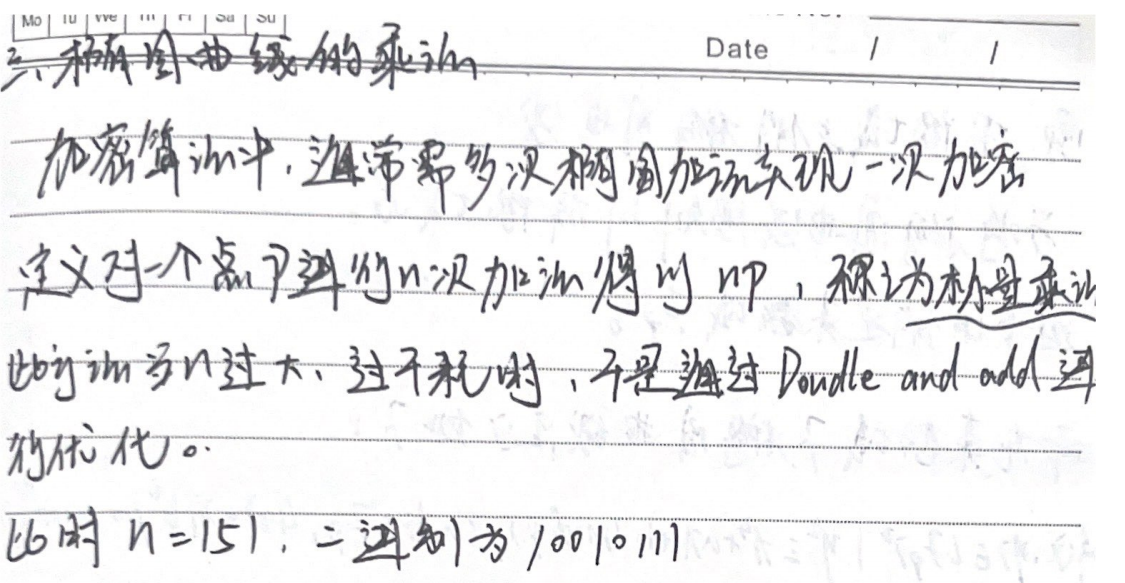 Mo Tu We Th Fr Sa Su
Date / /
三、椭圆曲线的乘法
加密算法中，通常需多次椭圆加法实现一次加密
定义对一个点P进行n次加法得到 nP，称之为标量乘法
此方法当n过大、过于耗时，于是通过 Doudle and add 进
行优化。
比时 n=151，二进制为 10010111